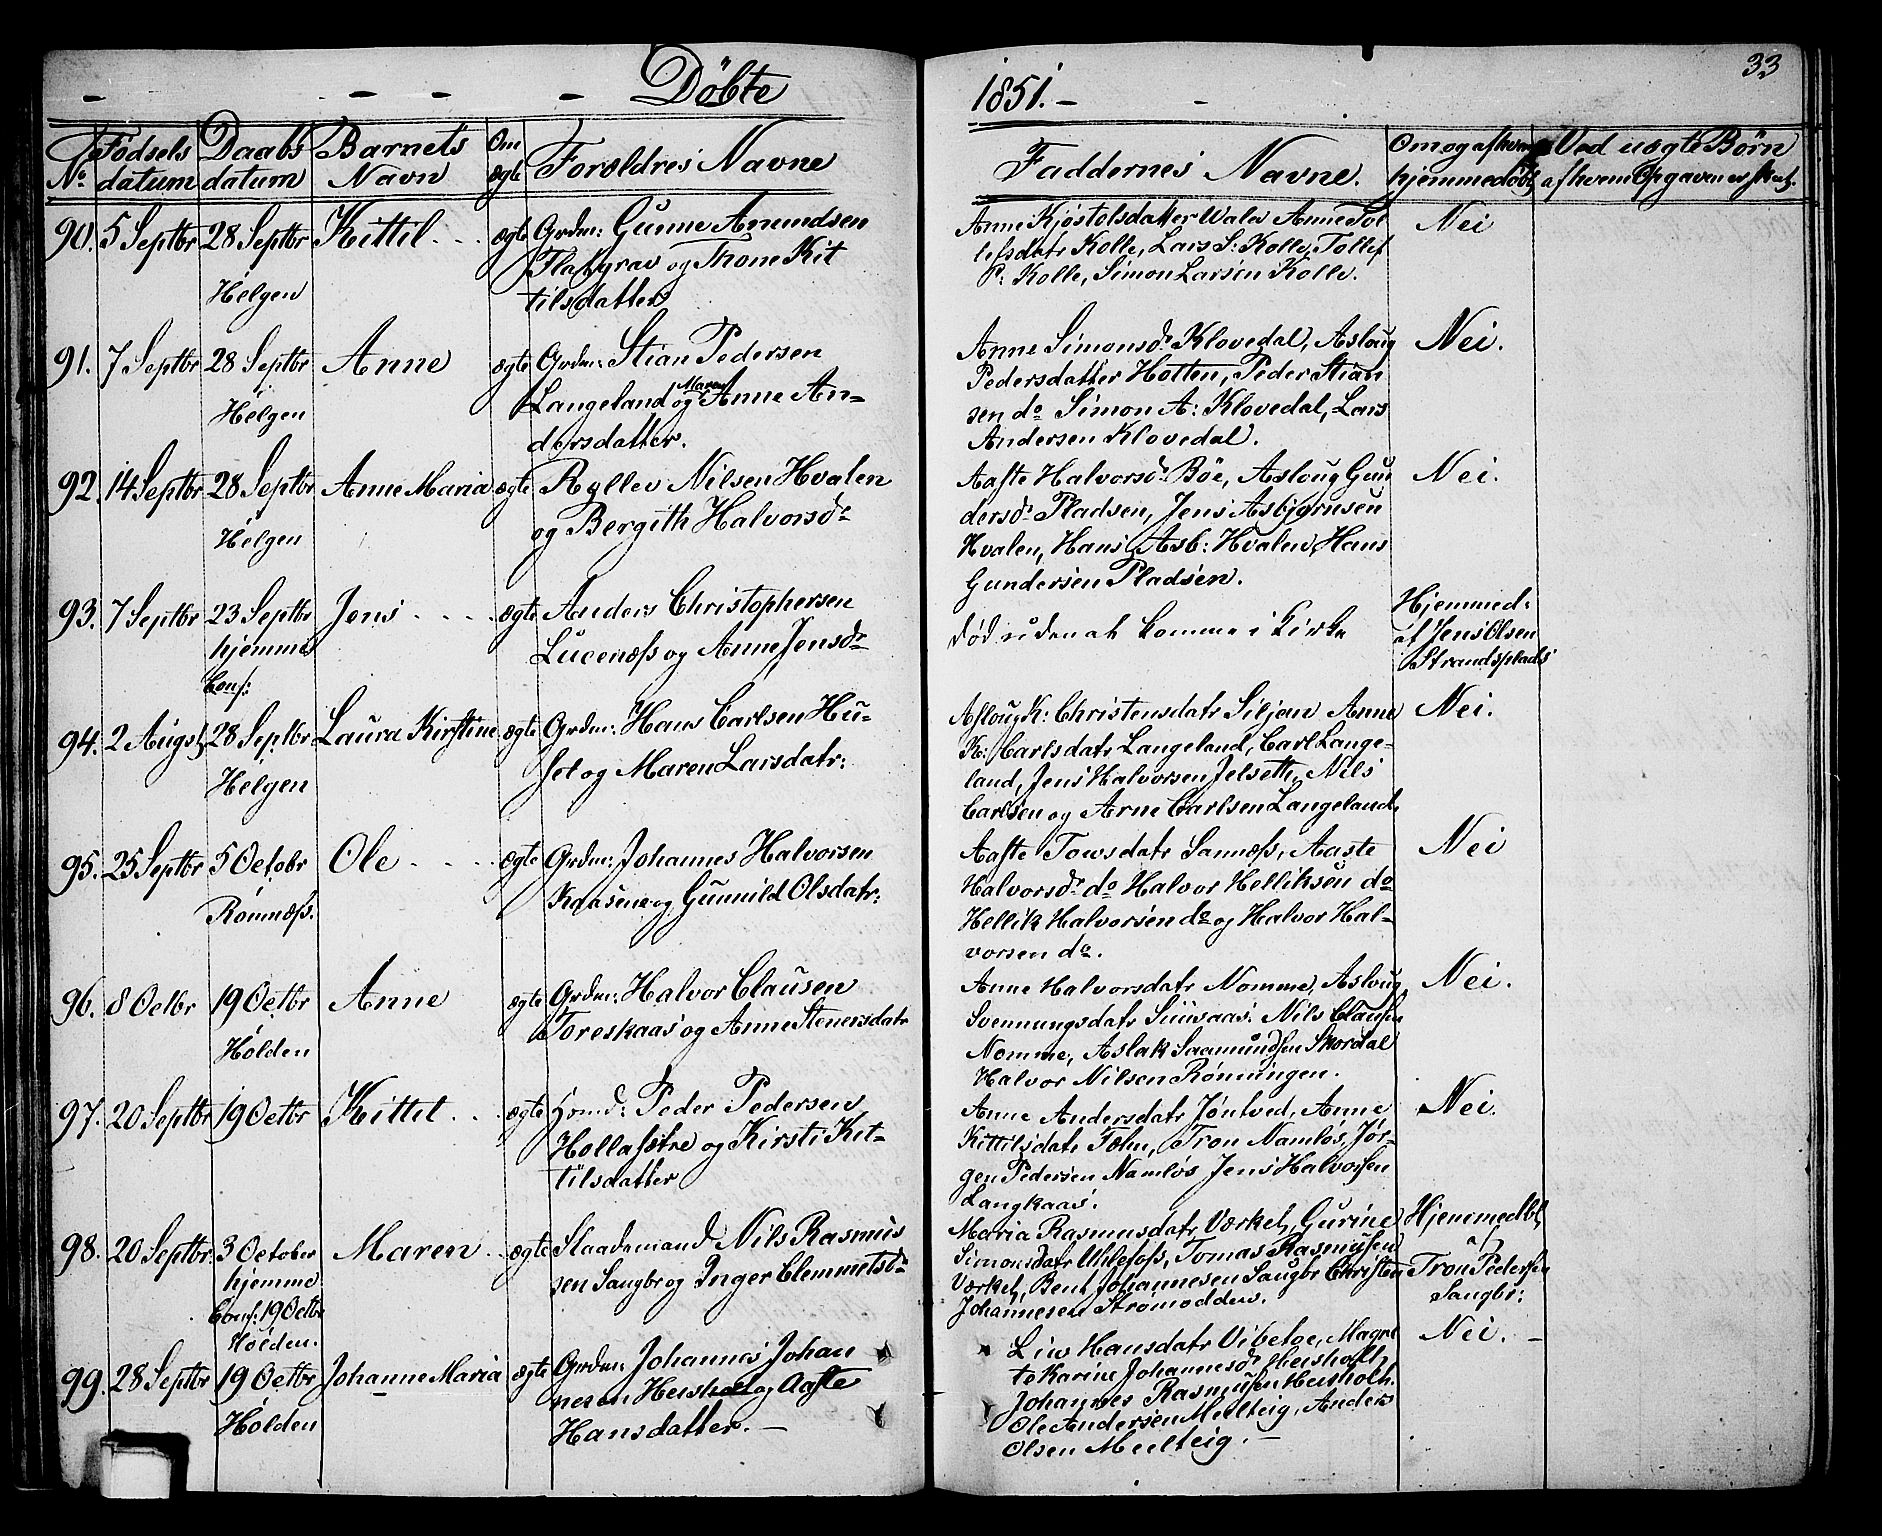 Döbte
1851.
33
No
Fødsels
datum
Daabs
datum
Barnets
Navn
Om
ægte
Forældres Navne
Faddernes Navne.
Om og af hvem
hjemmedøbt
Ved uægte Børn
af hvem Opgaven er skeet.
90. 5 Septbr 28 Septbr Kittil ægte Grdm: Gunne Amundsen
Helgen
Flatgrav og Thone Kit
tilsdatter
Anne Kjøstolsdatter Wale Anne Tol
lefsdatr Kolle, Lars S: Kolle, Tollef
P: Kolle, Simon Larsen Kolle.
Nei
91. 7 Septbr 28 Septbr Anne ægte Grdm: Stian Pedersen
Helgen
Langeland og Maren Anne An-
dersdatter.
Anne Simonsdr Klovedal, Asloug
Pedersdatter Hotten, Peder Stian
sen do Simon A: Klovedal, Lars
Andersen Klovedal.
Nei.
92. 14 Septbr 28 Septbr Anne Maria ægte Rollev Nilsen Hvalen
Helgen
og Bergith Halvorsdr
Aaste Halvorsdr Böe, Asloug Gun
dersdr Pladsen, Jens Asbjørnsen
Hvalen, Hans Asb: Hvalen, Hans
Gundersen Pladsen.
Nei.
93. 7 Septbr 23 Septbr Jens ægte Anders Christophersen
hjemme
Conf:
Lucenæss og Anne Jensdr
Død uden at komme i Kirke
Hjemmed:
af Jens Olsen
Strandsplads
94. 2 Augst 28 Septbr Laura Kirstine ægte Grdm: Hans Carlsen Hu-
Helgen
set og Maren Larsdatr:
Asloug K: Christensdatr Siljan Anne
K: Carlsdatr Langeland, Carl Lange-
land, Jens Halvorsen Jelseth, Nils
Carlsen og Arne Carlsen Langeland.
Nei.
95. 25 Septbr 5 Octobr Ole ægte Grdm: Johannes Halvorsen
Romnæss.
Kaasene og Gunnild Olsdatr:
Aaste Towsdatr Sannæss, Aaste
Halvorsdr do Halvor Helliksen do
Hellik Halvorsen do og Halvor Hal-
vorsen do.
Nei
96. 8 Octbr 19 Octbr Anne ægte Grdm: Halvor Clausen
Holden
Toreskaas og Anne Stenersdatr
Anne Halvorsdatr Nomme, Asloug
Svennungsdatr Nils Clausen
Nomme, Aslak Saamundsen Skordal
Halvor Nilsen Rönningen.
Nei.
97. 20 Septbr 19 Octbr Kittel ægte Huusmd: Peder Pedersen
Hollasetre og Kirsti Kit-
tilsdatter
Anne Andersdatr Jöntved, Anne
Kittilsdatr Tron Namløs, Jør-
gen Pedersen Namløs Jens Halvorsen
Langkaas.
Nei.
98. 20 Septbr 3 October Maren ægte Slaademand Nils Rasmus
hjemme
Conf: 19 Octbr
Holden.
sen Saugbr og Inger Clemmetsdr
Maria Rasmusdatr Værket, Gurine
Simonsdatr Ulefoss, Tomas Rasmusen
Værket, Bent Johannesen Saugbr Christen
Johannesen Strömodden.
Hjemmedbt
af
Tron Pedersen
Saugbr:
99. 28 Septbr 19 Octbr Johanne Maria ægte Grdm: Johannes Johan
Holden
nesen Heisholt og Aaste
Hansdatter.
Liv Hansdatr Vibetoe, Magre
te Karine Johannesdr Heisholt,
Johannes Rasmusen Heisholt.
Ole Andersen Meelteig, Anders
Olsen Meelteig.
Nei.